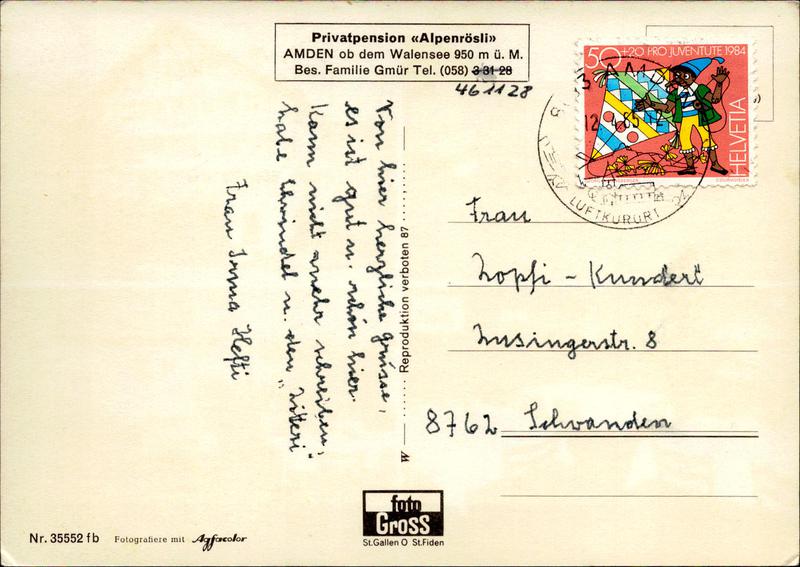 Privatpension «Alpenrösli»
AMDEN ob dem Walensee 950 m ü. M.
Bes. Familie Gmür Tel. (058) 3 31 28
46 11 28
50+20 PRO JUVENTUTE 1984
HELVETIA
AMDEN
12.4.85-12
LUFTKURORT
Von hier herzliche grüsse,
es ist gut u. schön hier.
Kann nicht mehr schreiben,
habe Schwindel u. den „Zitteri"
Frau Irma Hefti
Reproduktion verboten 87
Frau
Zopfi - Kundert
Zusingerstr. 8
8762 Schwanden
foto
Gross
St.Gallen O St.Fiden
Nr. 35552 fb Fotografiere mit Agfacolor